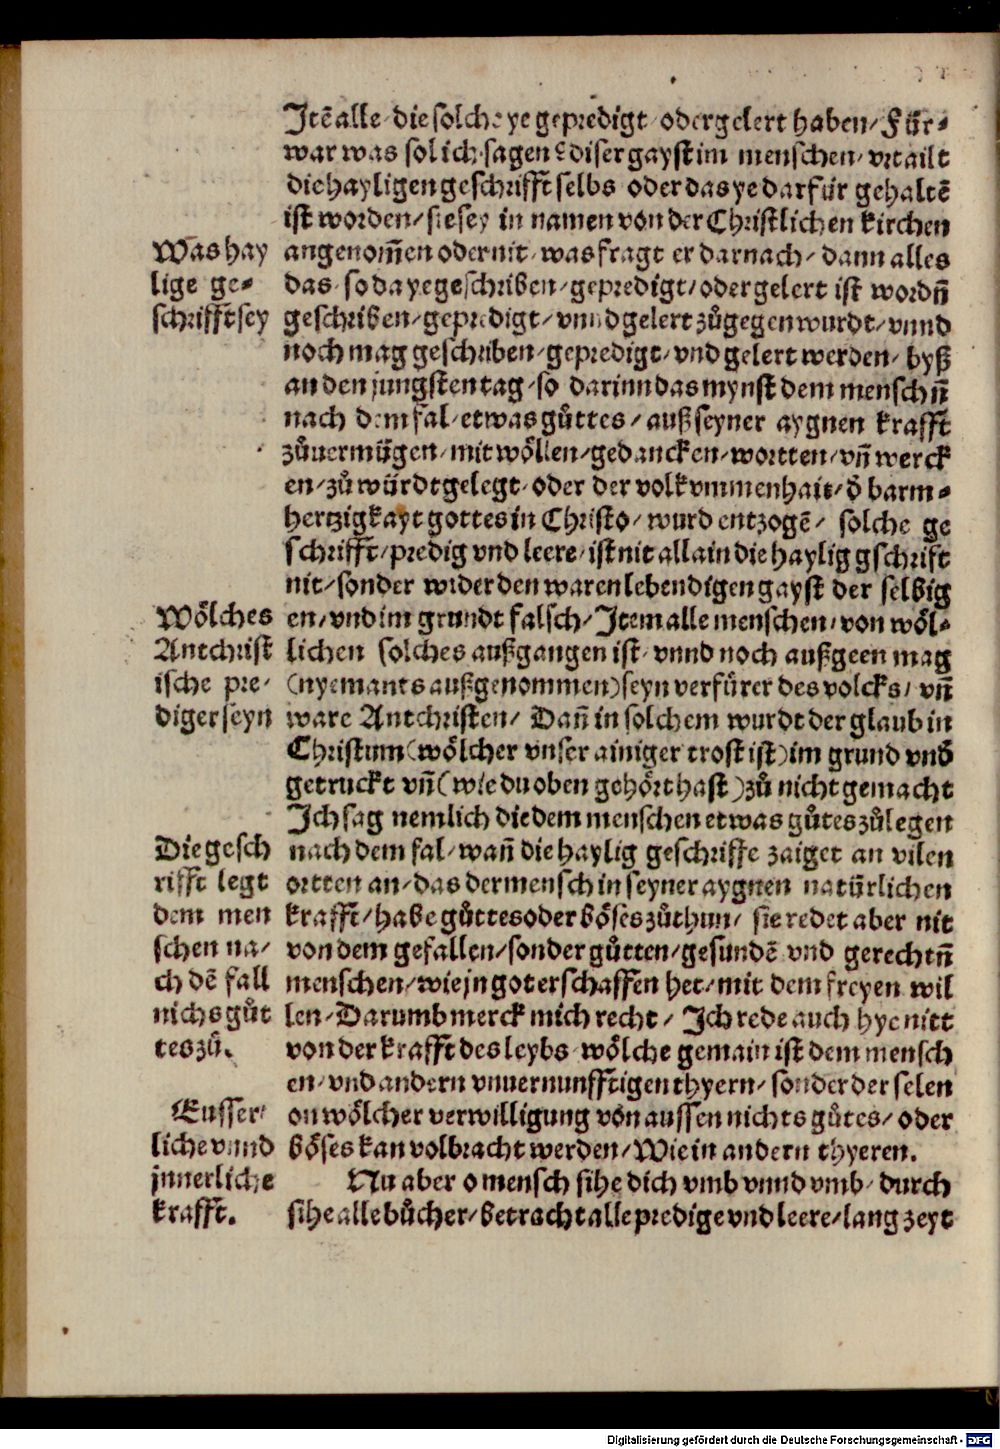 Jtē alle die solche ye gepredigt oder gelert haben/ Für⸗
war was sol ich sagen? diser gayst im menschen/ vrtailt
die hayligen geschrifft selbs oder das ye darfür gehaltē
ist worden/ sie sey in namen von der Christlichen kirchen
angenom̄en oder nit/ was fragt er darnach/ dann alles
das so da ye geschriben/ gepredigt/ oder gelert ist wordn̄
geschriben/ gepredigt/ vnnd gelert zůgegen wurdt/ vnnd
noch mag geschriben/ gepredigt/ vnd gelert werden/ byß
an den jungsten tag/ so darinn das mynst dem menschn̄
nach dem fal/ etwas gůttes/ auß seyner aygnen krafft
zůuermügen/ mit wöllen/ gedancken/ wortten/ vn̄ werck
en/ zů würdt gelegt/ oder der volkummenhait/ d̄ barm⸗
hertzigkayt gottes in Christo/ wurd entzogē/ solche ge
schrifft/ predig vnd leere/ ist nit allain die haylig gschrift
nit/ sonder wider den waren lebendigen gayst der selbig
en/ vnd im grundt falsch/ Jtem alle menschen/ von wöl⸗
lichen solches außgangen ist/ vnnd noch außgeen mag
(nyemants außgenommen) seyn verfürer des volcks/ vn̄
ware Antchristen/ Dan̄ in solchem wurdt der glaub in
Christum (wölcher vnser ainiger trost ist) im grund vnd
getruckt vn̄ (wie du oben gehört hast) zů nicht gemacht
Jch sag nemlich die dem menschen etwas gůtes zůlegen
nach dem fal/ wan̄ die haylig geschriffe zaiget an vilen
ortten an/ das der mensch in seyner aygnen natürlichen
krafft/ habe gůttes oder böses zůthun/ sie redet aber nit
von dem gefallen/ sonder gůtten/ gesundē vnd gerechtn̄
menschen/ wie jn got erschaffen het/ mit dem freyen wil
len/ Darumb merck mich recht/ Jch rede auch hye nitt
von der krafft des leybs wölche gemain ist dem mensch
en/ vnd andern vnuernunfftigen thyern/ sonder der selen
on wölcher verwilligung von aussen nichts gůtes/ oder
böses kan volbracht werden/ Wie in andern thyeren.
Nu aber o mensch sihe dich vmb vnnd vmb/ durch
sihe alle bůcher/ betracht alle predige vnd leere/ lang zeyt
Was hay
lige ge⸗
schrifft sey
Wölches
Antchrist
ische pre⸗
diger seyn
Die gesch
rifft legt
dem men
schen na/
ch dē fall
nichs gůt
tes zů.
Eusser/
liche vnnd
jnnerliche
krafft.
Digitalisierung gefördert durch die Deutsche Forschungsgemeinschaft - DFG